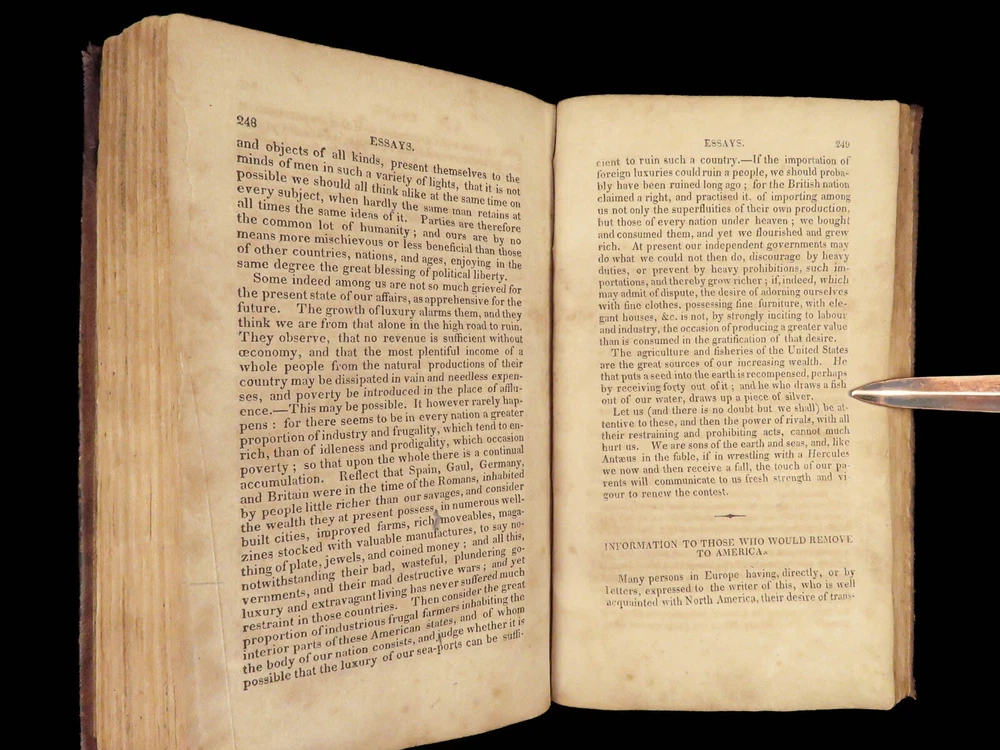 248
ESSAYS.
and objects of all kinds, present themselves to the
minds of men in such a variety of lights, that it is not
possible we should all think alike at the same time on
every subject, when hardly the same man retains at
all times the same ideas of it. Parties are therefore
the common lot of humanity; and ours are by no
means more mischievous or less beneficial than those
of other countries, nations, and ages, enjoying in the
same degree the great blessing of political liberty.
Some indeed among us are not so much grieved for
the present state of our affairs, as apprehensive for the
future. The growth of luxury alarms them, and they
think we are from that alone in the high road to ruin.
They observe, that no revenue is sufficient without
œconomy, and that the most plentiful income of a
whole people from the natural productions of their
country may be dissipated in vain and needless expen-
ses, and poverty be introduced in the place of afflu-
ence.—This may be possible. It however rarely hap-
pens: for there seems to be in every nation a greater
proportion of industry and frugality, which tend to en-
rich, than of idleness and prodigality, which occasion
poverty; so that upon the whole there is a continual
accumulation. Reflect that Spain, Gaul, Germany,
and Britain were in the time of the Romans, inhabited
by people little richer than our savages, and consider
the wealth they at present possess, in numerous well-
built cities, improved farms, rich moveables, maga-
zines stocked with valuable manufactures, to say no-
thing of plate, jewels, and coined money; and all this,
notwithstanding their bad, wasteful, plundering go-
vernments, and their mad destructive wars; and yet
luxury and extravagant living has never suffered much
restraint in those countries. Then consider the great
proportion of industrious frugal farmers inhabiting the
interior parts of these American states, and of whom
the body of our nation consists, and judge whether it is
possible that the luxury of our sea-ports can be suffi-
ESSAYS.
249
cient to ruin such a country.—If the importation of
foreign luxuries could ruin a people, we should proba-
bly have been ruined long ago; for the British nation
claimed a right, and practised it. of importing among
us not only the superfluities of their own production,
but those of every nation under heaven; we bought
and consumed them, and yet we flourished and grew
rich. At present our independent governments may
do what we could not then do, discourage by heavy
duties, or prevent by heavy prohibitions, such im-
portations, and thereby grow richer; if, indeed, which
may admit of dispute, the desire of adorning ourselves
with fine clothes, possessing fine furniture, with ele-
gant houses, &c. is not, by strongly inciting to labour
and industry, the occasion of producing a greater value
than is consumed in the gratification of that desire.
The agriculture and fisheries of the United States
are the great sources of our increasing wealth. He
that puts a seed into the earth is recompensed, perhaps
by receiving forty out of it; and he who draws a fish
out of our water, draws up a piece of silver.
Let us (and there is no doubt but we shall) be at-
tentive to these, and then the power of rivals, with all
their restraining and prohibiting acts, cannot much
hurt us. We are sons of the earth and seas, and, like
Antæus in the fable, if in wrestling with a Hercules
we now and then receive a fall, the touch of our pa-
rents will communicate to us fresh strength and vi-
gour to renew the contest.
INFORMATION TO THOSE WHO WOULD REMOVE
TO AMERICA.
Many persons in Europe having, directly, or by
letters, expressed to the writer of this, who is well
acquainted with North America, their desire of trans-